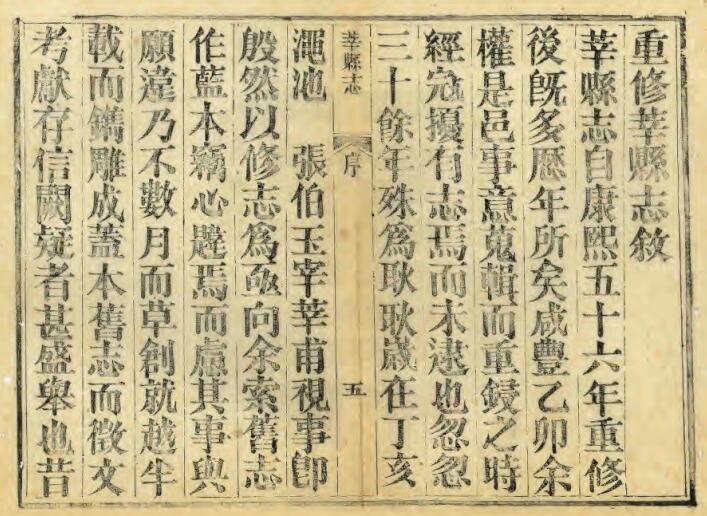 重修莘縣志敘
莘縣志自康熙五十六年重修
後旣多歷年所矣咸豐乙卯余
權是邑事意蒐輯而重鋟之時
經寇擾有志焉而未逮也忽忽
三十餘年殊爲耿耿歲在丁亥
莘縣志
序
五
澠池 張伯玉宰莘甫視事卽
殷然以修志爲亟向余索舊志
作藍本竊心韙焉而慮其事與
願違乃不數月而草創就越半
載而鐫雕成蓋本舊志而徵文
考獻存信闕疑者甚盛舉也昔